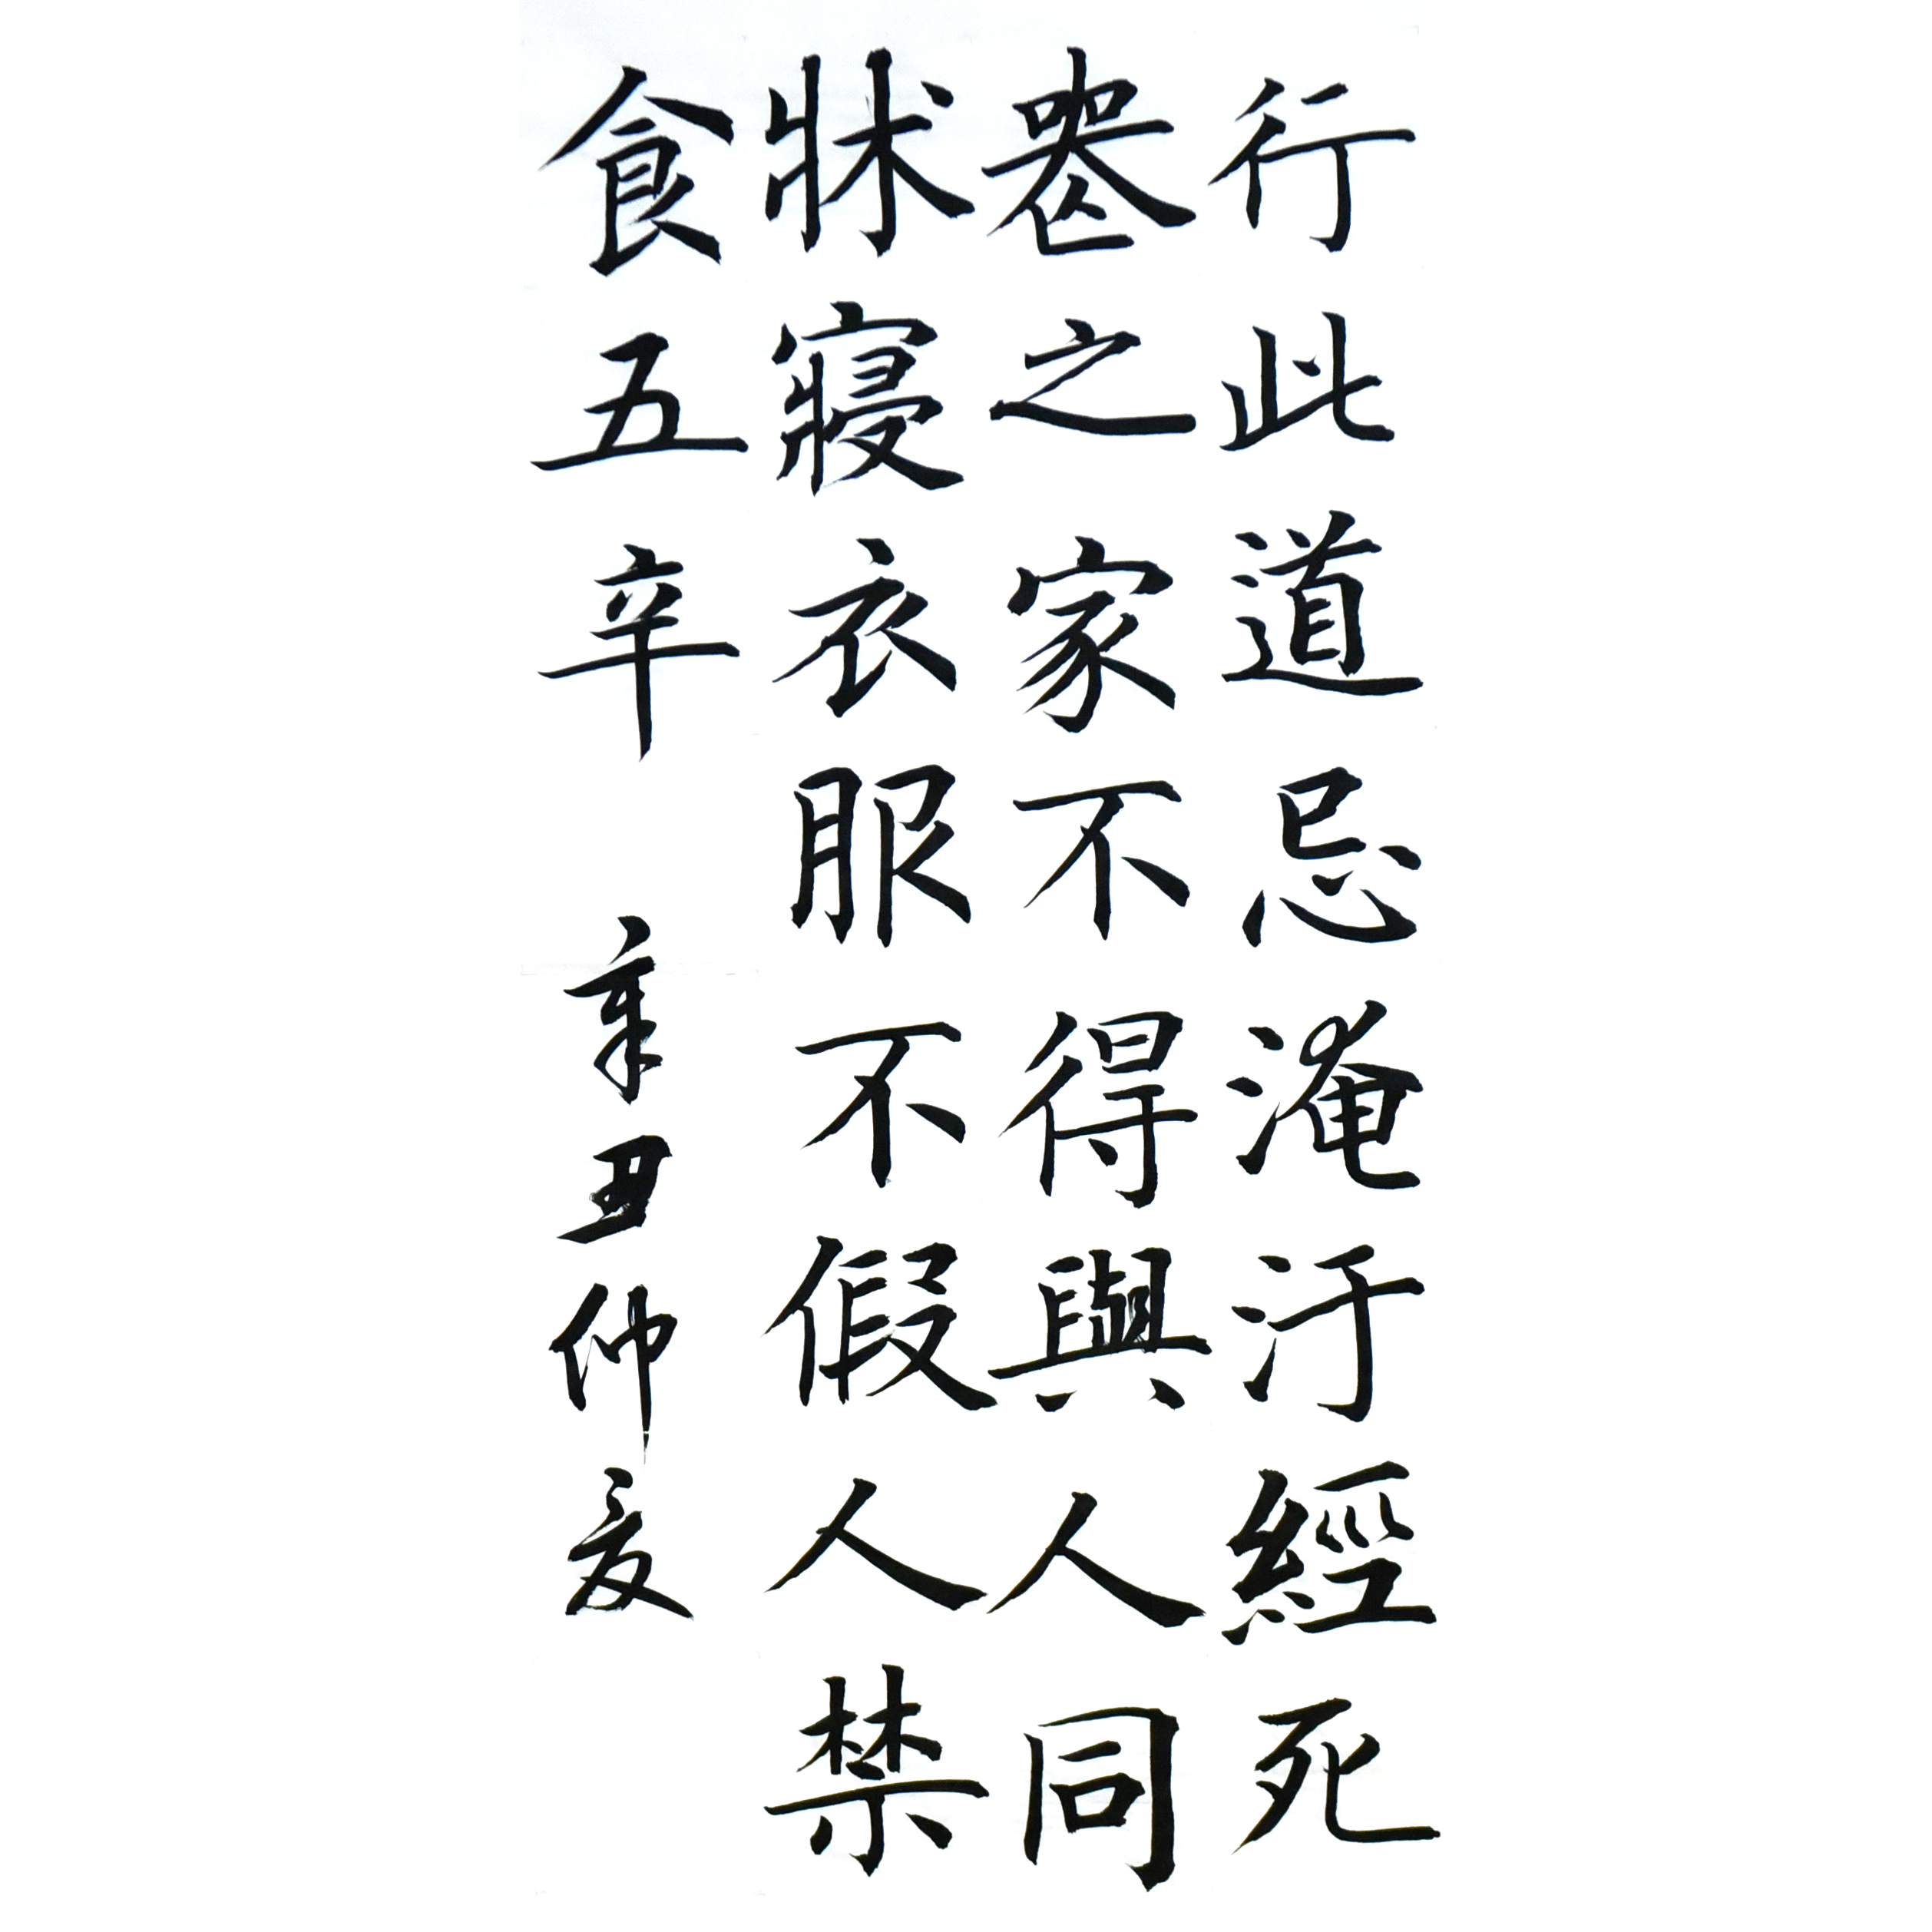 行此道忌淹汙經死
喪之家不得與人同
牀寢衣服不假人禁
食五辛 辛丑仲夏